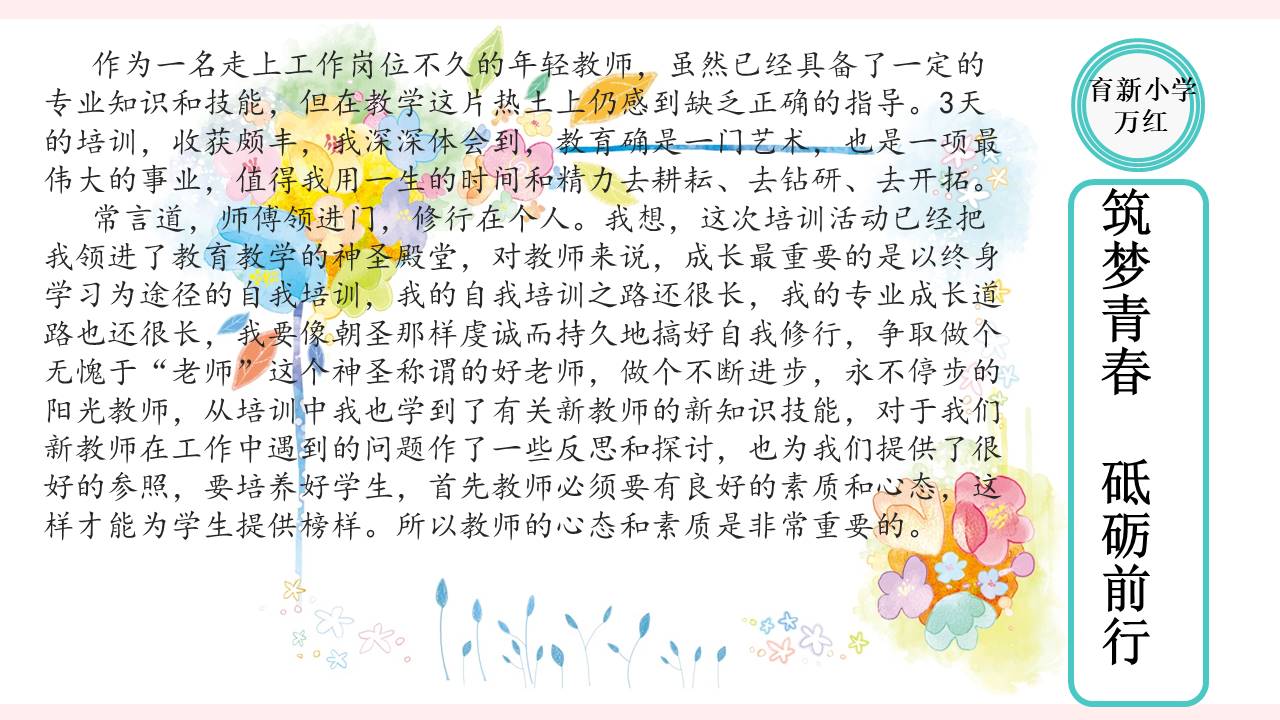 作为一名走上工作岗位不久的年轻教师，虽然已经具备了一定的
专业知识和技能，但在教学这片热土上仍感到缺乏正确的指导。3天
的培训，收获颇丰，我深深体会到，教育确是一门艺术，也是一项最
伟大的事业，值得我用一生的时间和精力去耕耘、去钻研、去开拓。
常言道，师傅领进门，修行在个人。我想，这次培训活动已经把
我领进了教育教学的神圣殿堂，对教师来说，成长最重要的是以终身
学习为途径的自我培训，我的自我培训之路还很长，我的专业成长道
路也还很长，我要像朝圣那样虔诚而持久地搞好自我修行，争取做个
无愧于“老师”这个神圣称谓的好老师，做个不断进步，永不停步的
阳光教师，从培训中我也学到了有关新教师的新知识技能，对于我们
新教师在工作中遇到的问题作了一些反思和探讨，也为我们提供了很
好的参照，要培养好学生，首先教师必须要有良好的素质和心态，这
样才能为学生提供榜样。所以教师的心态和素质是非常重要的。
育新小学
万红
筑梦青春 砥砺前行